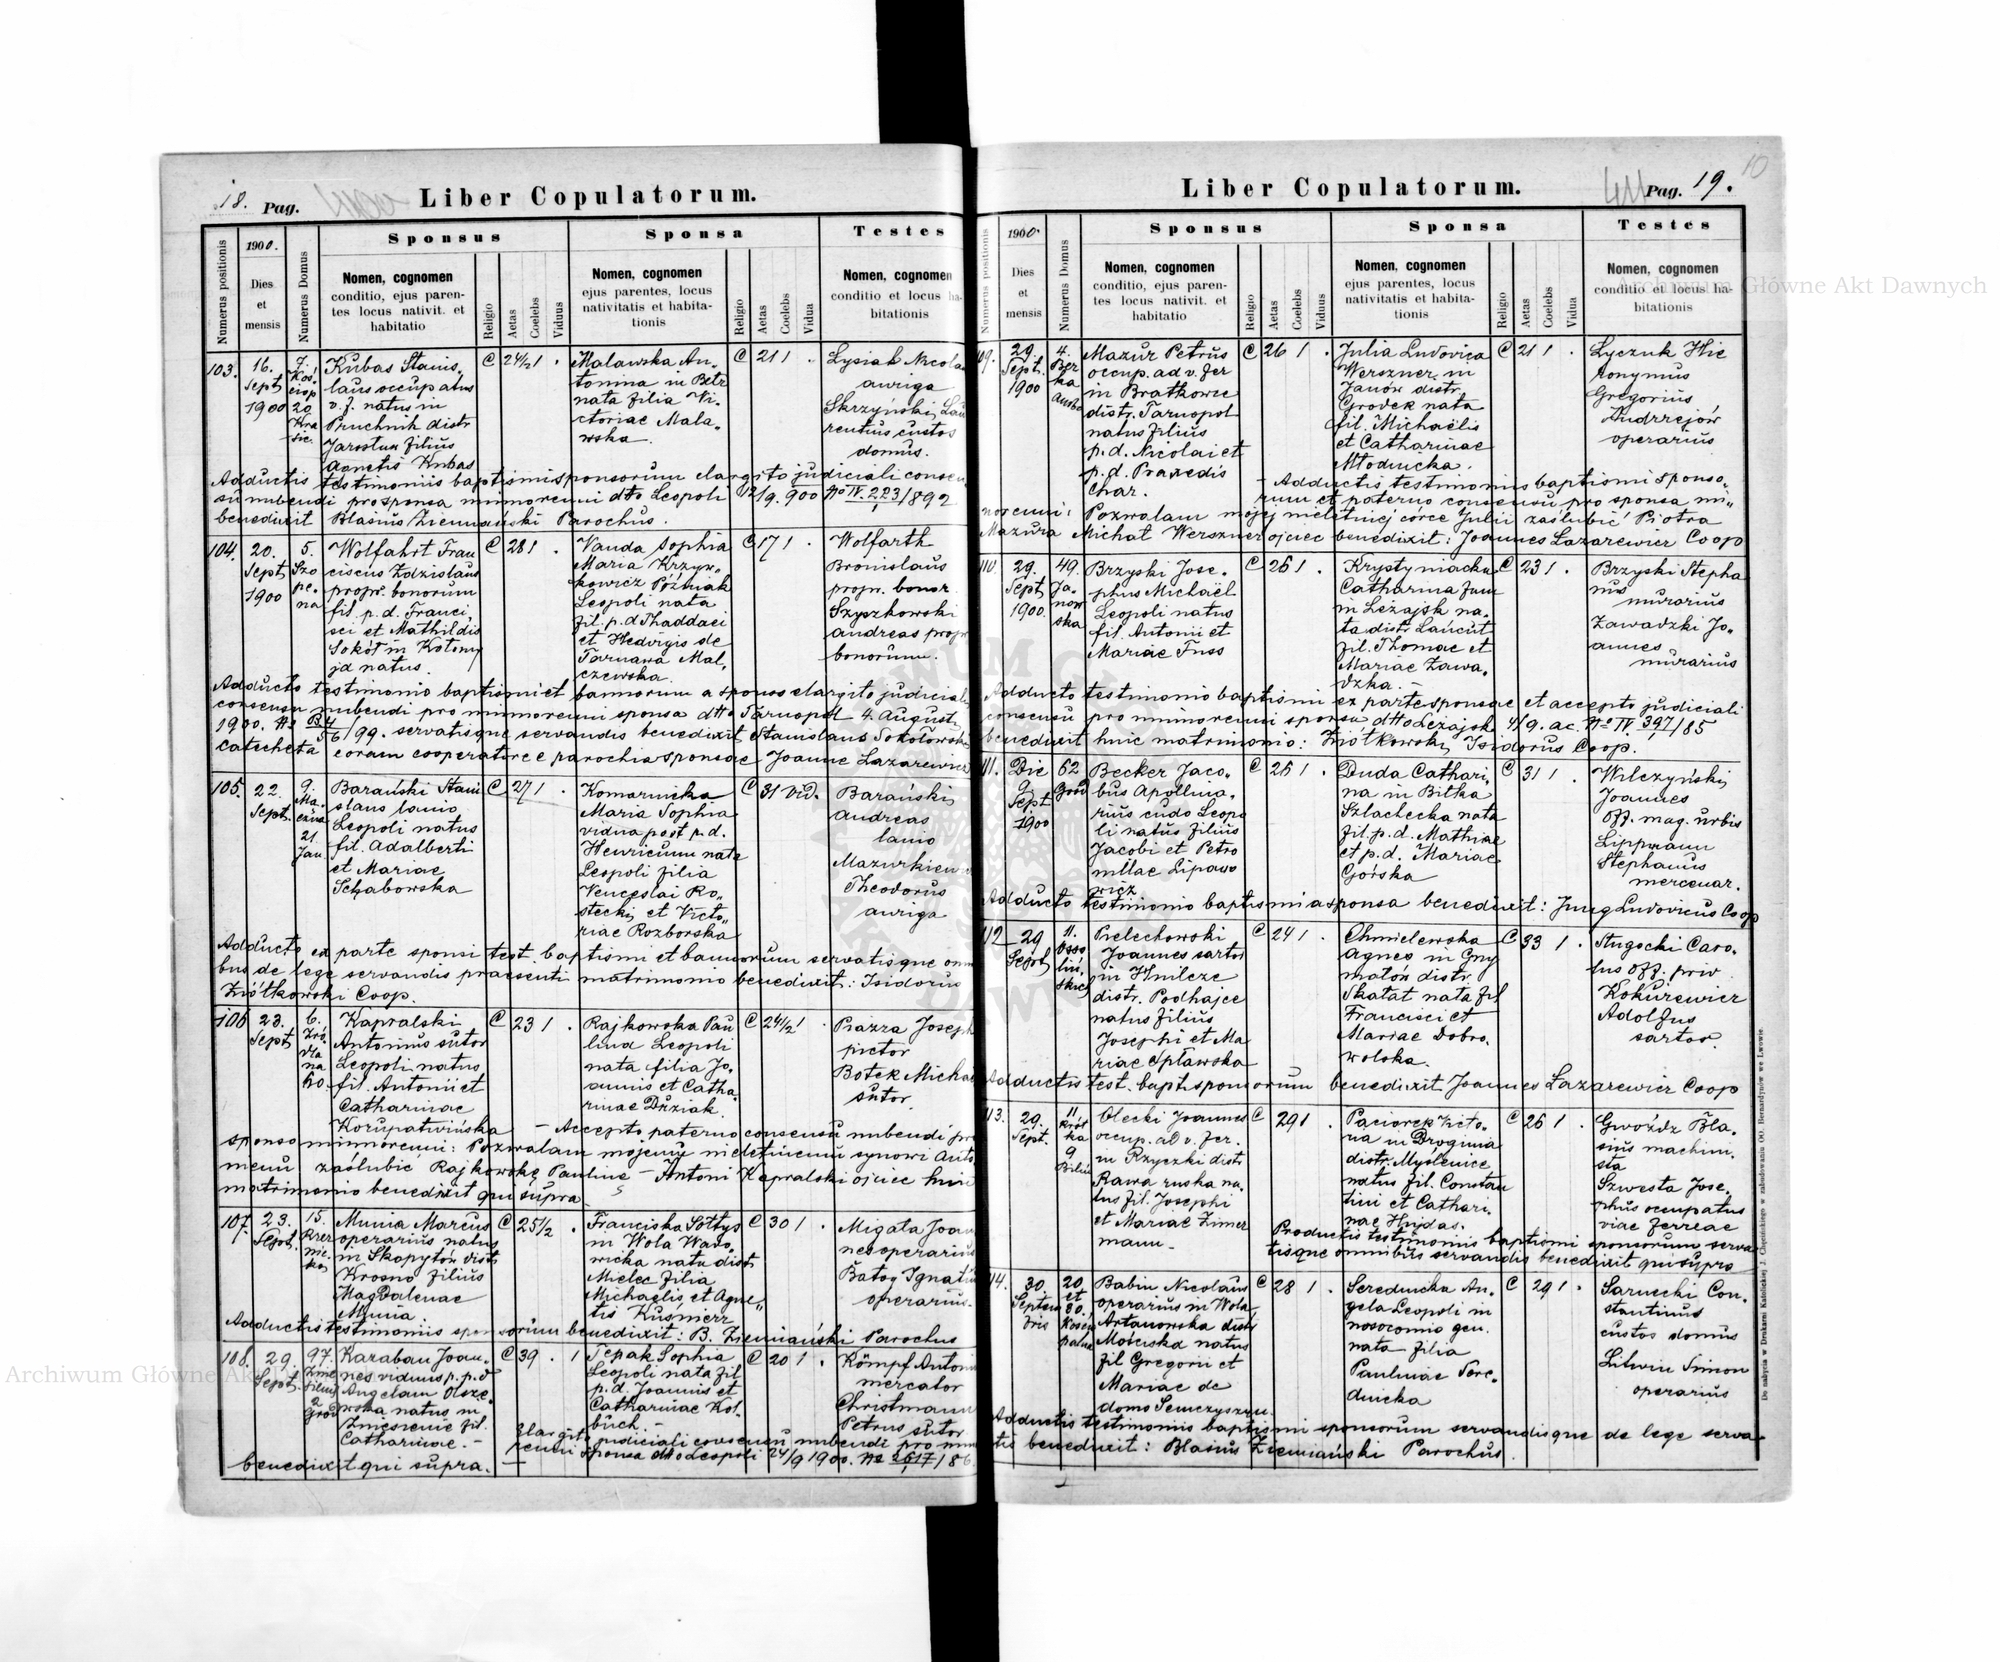 18. Pag.
Liber Copulatorum.
Numerus positionis
1900.
Dies
et
mensis
Numerus Domus
Sponsus
Nomen, cognomen
conditio, ejus paren-
tes locus nativit. et
habitatio
Religio
Aetas
Coelebs
Viduus
Sponsa
Nomen, cognomen
ejus parentes, locus
nativitatis et habita-
tionis
Religio
Aetas
Coelebs
Vidua
Testes
Nomen, cognomen
conditio et locus ha-
bitationis
103.
16.
Sept
1900
7.
20
Kubas Stanis-
laus occupatus
v. f. natus in
Pruchnik distr
Jaroslau filius
Agnetis Kubas
C 24 1/2 1 .
Malawska An-
tonina in Betz
nata filia Vi-
ctoriae Mala-
wska.
C 21 1 .
Lysiak Nicola
auriga
Skrzyński Lau
rentius custos
domus.
Adductis testimoniis baptismi sponsorum elargito judiciali consen
su nubendi pro sponsa minorenni dtto Leopoli 12/9. 900 No IV. 223/892
benedixit Blasius Ziemiański Parochus.
104.
20.
Sept
1900
5.
Szo
pe-
na
Wolfahrt Fran
ciscus Zdzislaus
propr. bonorum
fil. p. d. Franci,
sci et Mathildis
Sokół in Kołomy
ja natus.
C 28 1 .
Vanda Sophia
Maria Krzyw-
kowicz Póżniak
Leopoli nata
fil. p. d Thaddaei
et Hedvigis de
Tarnawa Mal,
czewska.
C 17 1 .
Wolfarth
Bronislaus
propr. bonor
Szyszkowski
Andreas propr
bonorum.
Adducto testimonio baptismi et bannorum a sponso elargito judiciali
consensu nubendi pro minorenni sponsa dtto Tarnopol 4. Augusti
1900. servatisque servandis benedixit Stanislaus Sokołowski
Catecheta coram cooperatore e parochia sponsae Joanne Lazarewicz
105.
22.
Sept.
9.
21
Jan.
Barański Stani
slaus lanio
Leopoli natus
fil. Adalberti
et Mariae
Schabowska
C 27 1 .
Komarnicka
Maria Sophia
vidua post p. d.
Henricum nata
Leopoli filia
Venceslai Ro-
stecki et Victo-
riae Rozborska
C 31 vid.
Barański
Andreas
lanio
Mazurkiewi
Theodorus
auriga
Adducto ex parte sponsi test. baptismi et bannorum servatisque omni
bus de lege servandis praesenti matrimonio benedixit: Isidorus
Ziółkowski Coop.
106
23.
Sept
6.
Kapralski
Antonius sutor
Leopoli natus
fil. Antonii et
Catharinae
Korupatwińska
C 23 1 .
Rajkowska Pau
lina Leopoli
nata filia Jo-
annis et Catha-
rinae Duziak
C 24 1/2 1 .
Piazza Joseph
pictor
Botek Micha
sutor.
– Accepto paterno consensu nubendi pro
sponso minorenni: Pozwalam mojemu nieletniemu synowi Anto
niemu zaślubić Rajkowskę Paulinę – Antoni Kapralski ojciec huic
matrimonio benedixit qui supra
107.
23.
Sept.
15.
Munia Marcus
operarius natus
in Skopytów distr
Krosno filius
Magdalenae
Munia.
C 25 1/2 .
Franciska Sołtys
in Wola Wado
wicka nata distr
Mielec filia
Michaelis et Agne-
tis Kusmierz
C 30 1 .
Migata Joan
nes operarius
Batog Ignatiu
operarius.
Adductis testimoniis sponsorum benedixit: B. Ziemiański Parochus
108.
29.
Sept.
97.
Karaban Joan-
nes viduus p. p. d
Angelam Olsze-
wska natus in
Zniesienie fil.
Catharinae. –
C 39 . 1
Tepak Sophia
Leopoli nata fil
p. d. Joannis et
Catharinae Kol-
buch –
C 20 1 .
Kömpf Antoni
mercator
Christmann
Petrus sutor
Elargito judiciali consensu nubendi pro mino
renni sponsa dtto Leopoli 24/9 1900. No 2617/86
benedixit qui supra.
Liber Copulatorum.
Pag. 19.
10
Numerus positionis
1900.
Dies
et
mensis
Numerus Domus
Sponsus
Nomen, cognomen
conditio, ejus paren-
tes locus nativit. et
habitatio
Religio
Aetas
Coelebs
Viduus
Sponsa
Nomen, cognomen
ejus parentes, locus
nativitatis et habita-
tionis
Religio
Aetas
Coelebs
Vidua
Testes
Nomen, cognomen
conditio et locus ha-
bitationis
109.
29.
Sept.
1900
4.
Ber
ka
Mazur Petrus
occup. ad v. fer
in Bratkowce
distr. Tarnopol
natus filius
p. d. Nicolai et
p. d. Praxedis
Char.
C 26 1 .
Julia Ludovica
Werszner in
Janów distr.
Grodek nata
fil. Michaëlis
et Catharinae
Młodnicka.
C 21 1 .
Lyczuk Hie
ronymus
Gregorius
Andrzejów
operarius
– Adductis testimoniis baptismi sponso-
rum et paterno consensu pro sponsa mi-
norenni: Pozwalam mojej nieletniej córce Julii zaślubić Piotra
Mazura Michał Werszner ojciec benedixit: Joannes Lazarewicz Coop
110.
29.
Sept
1900.
49.
Ja-
now
ska
Brzyski Jose-
phus Michaël
Leopoli natus
fil. Antonii et
Mariae Fuss
C 26 1 .
Krystyniacka
Catharina fam
in Leżajsk na-
ta distr Lańcut
fil. Thomae et
Mariae Zawa-
dzka. –
C 23 1 .
Brzyski Stepha
nus
murarius
Zawadzki Jo-
annes
murarius
Adducto testimonio baptismi ex parte sponsae et accepto judiciali
consensu pro minorenni sponsa dtto Leżajsk 4/9. ac. No IV. 397/85
benedixit huic matrimonio: Ziółkowski Isidorus Coop.
111.
Die
9
Sept
1900
62
Grod
Becker Jaco-
bus Apollina-
rius cudo Leopo
li natus filius
Jacobi et Petro
nillae Lipawo
wicz
C 25 1 .
Duda Cathari-
na in Bilka
Szlachecka nata
fil. p. d. Mathiae
et p. d. Mariae
Górska
C 31 1 .
Wilczyński
Joannes
off. mag. urbis
Lippmann
Stephanus
mercenar.
Adducto testimonio baptismi a sponsa benedixit: Jung Ludovicus Coop
112
29
Sept
11.
Osso
liń-
skich
Pielechowski
Joannes sartor
in Hnilcze
distr. Podhajce
natus filius
Josephi et Ma
riae Spławska
C 24 1 .
Chmielewska
Agnes in Grzy
matów distr.
Skałat nata fil
Francisci et
Mariae Dobro-
wolska.
C 33 1 .
Sługocki Caro-
lus off. priv.
Kokurewicz
Adolfus
sartor.
Adductis test. bapt. sponsorum benedixit Joannes Lazarewicz Coop
113.
29.
Sept.
11
Krót
ka
9
Olecki Joannes
occup. ad v. fer.
in Rzyczki distr
Rawa ruska na-
tus fil. Josephi
et Mariae Zimer
mann –
C 29 1
Paciorek Victo-
ria in Droginia
distr. Myślenice
natus fil. Constan
tini et Cathari
nae Hujdas.
C 26 1 .
Gwóźdz Bla-
sius machini-
sta
Szwesta Jose-
phus occupatus
viae ferreae
Productis testimoniis baptismi sponsorum serva-
tisque omnibus servandis benedixit qui supra
114.
30.
Septem
bris
20
et
80.
Babin Nicolaus
operarius in Wola
Artanowska distr
Mościska natus
fil Gregorii et
Mariae de
domo Semczyszyn.
C 28 1 .
Serednicka An-
gela Leopoli in
nosocomio gen.
nata filia
Paulinae Sere-
dnicka
C 29 1 .
Sarnecki Con-
stantinus
custos domus
Litwin Simon
operarius
Adductis testimoniis baptismi sponsorum servandisque de lege serva-
tis benedixit: Blasius Ziemiański Parochus.
Do nabycia w Drukarni Katolickiej J. Chęcińskiego w zabudowaniu OO. Bernardynów we Lwowie.
Archiwum Główne Akt Dawnych
Archiwum Główne Akt Dawnych